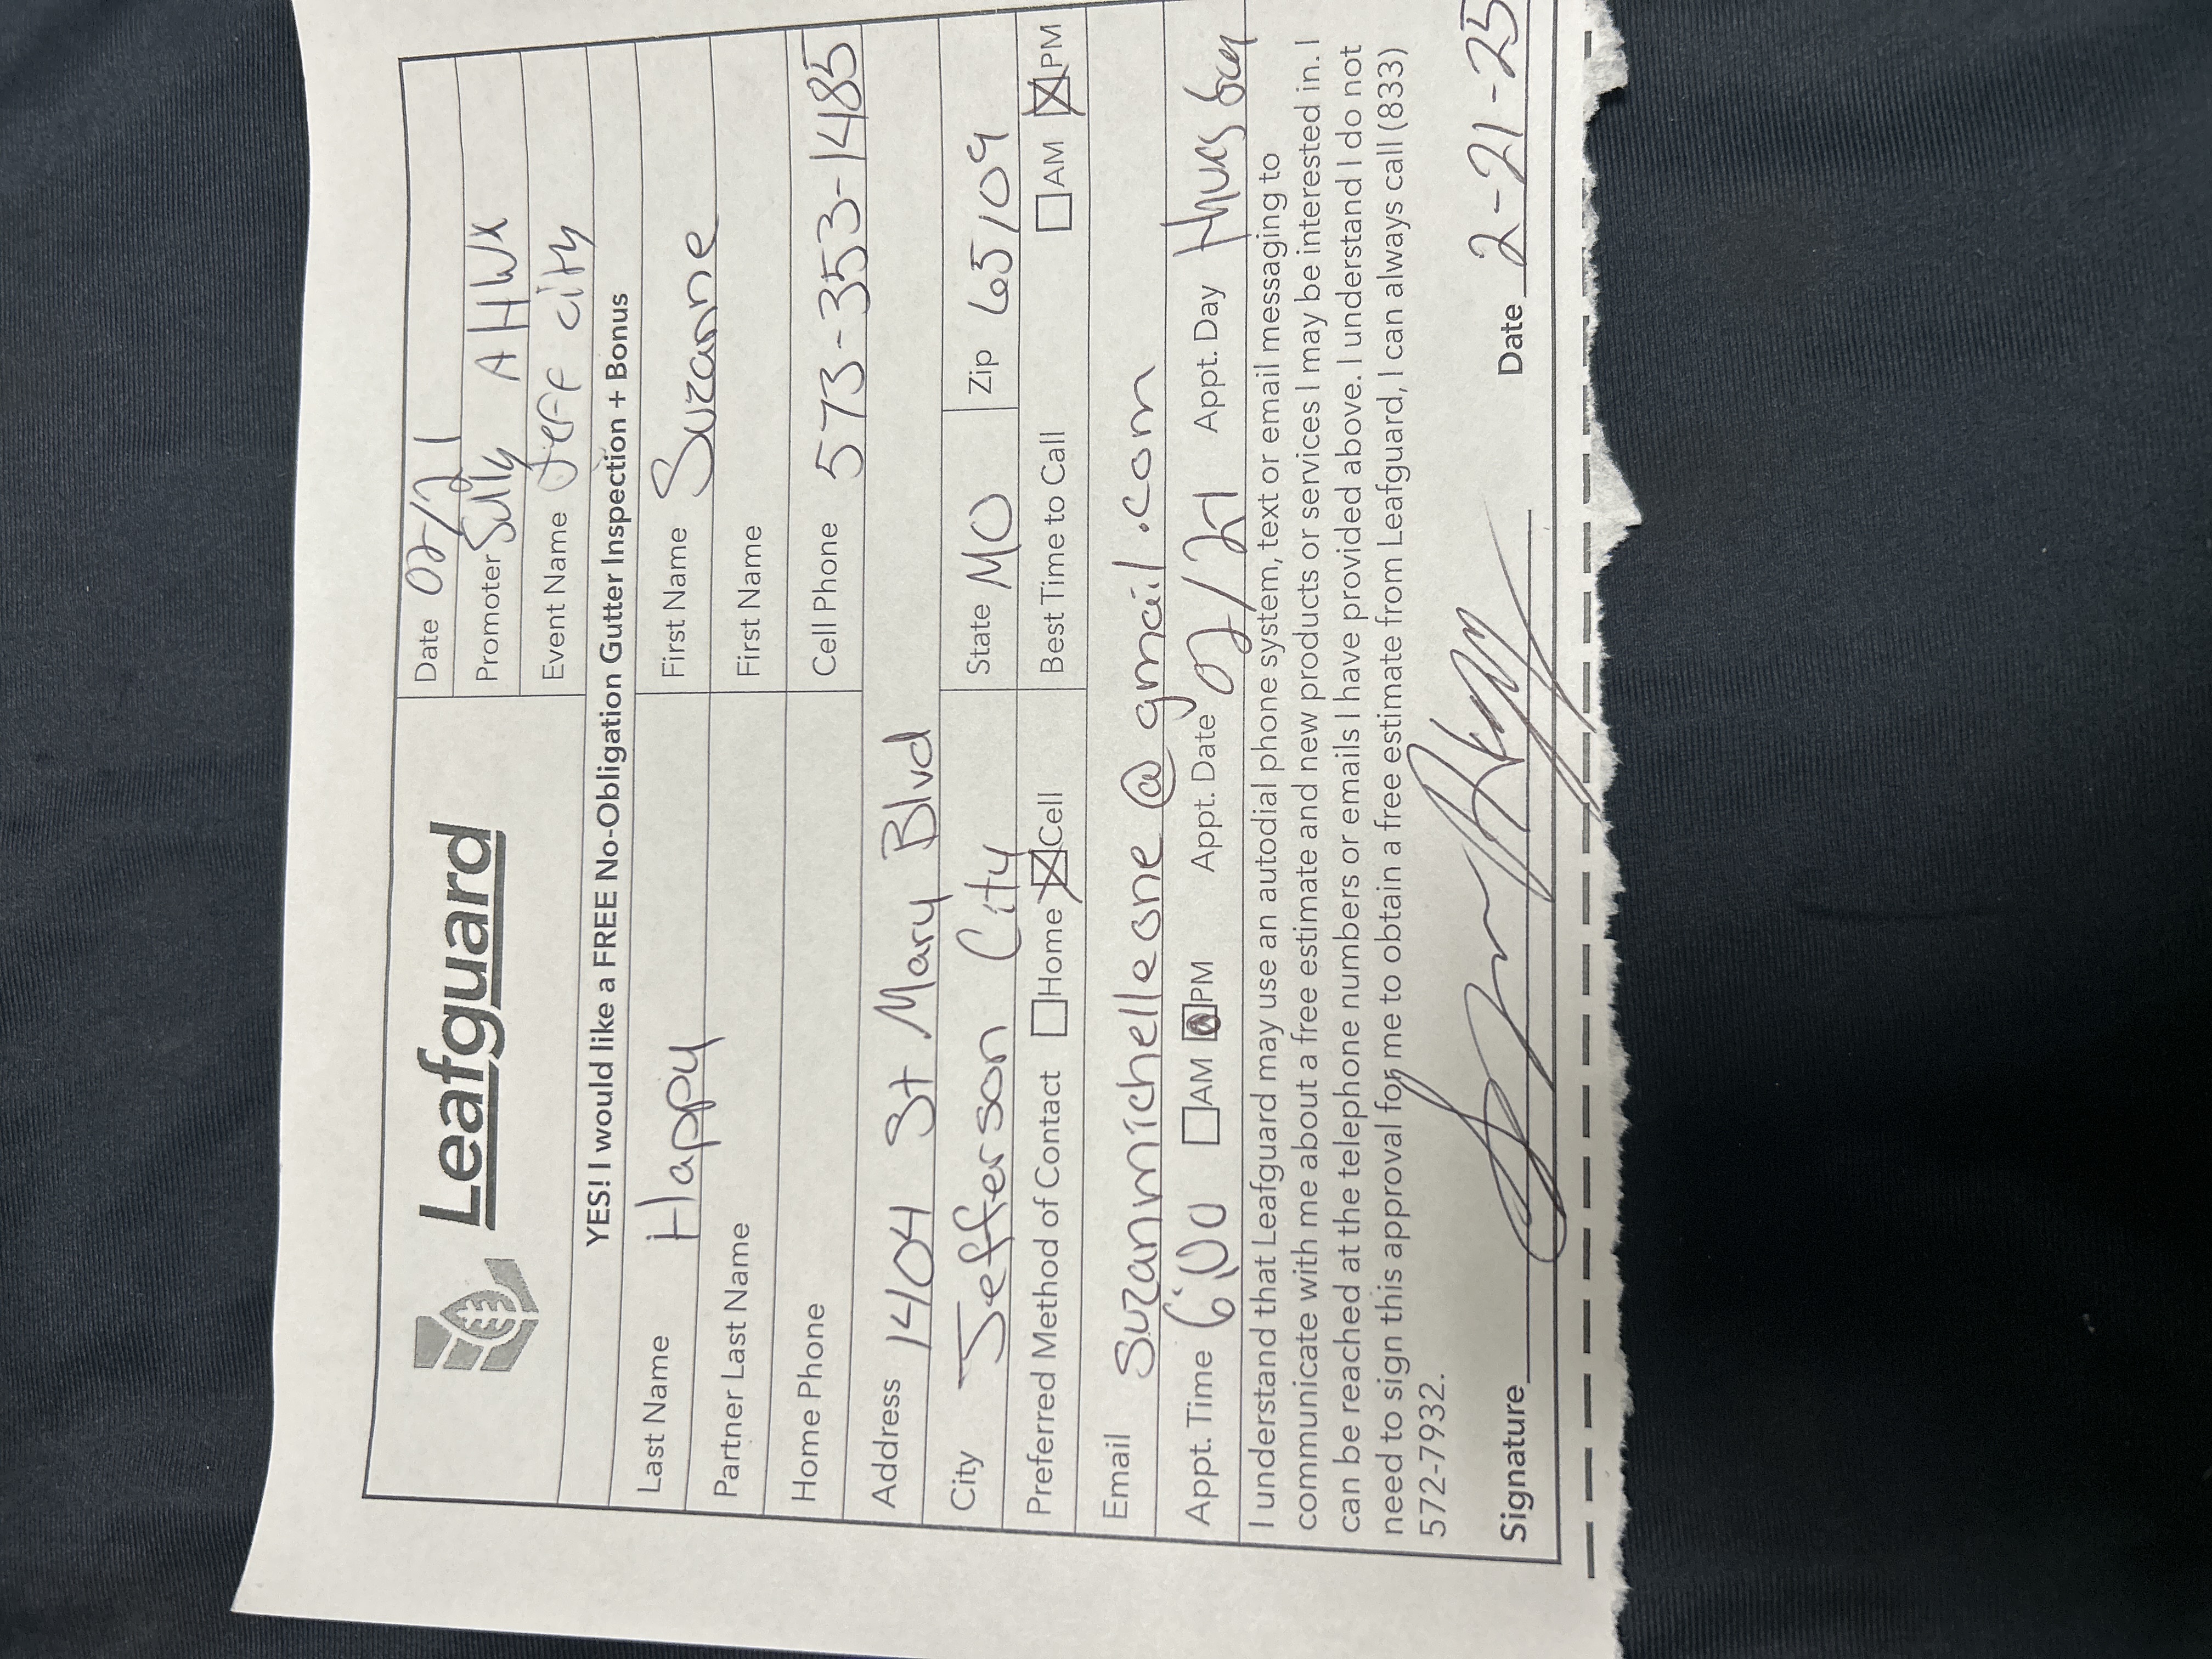 Leafguard
Date 02/21
Promoter Sully AHWX
Event Name Jeff city
YES! I would like a FREE No-Obligation Gutter Inspection + Bonus
Last Name Happy First Name Suzanne
Partner Last Name First Name
Home Phone Cell Phone 573-353-1485
Address 1404 St Mary Blvd
City Jefferson City State MO Zip 65109
Preferred Method of Contact Home Cell Best Time to Call AM PM
Email suzanmichelleone@gmail.com
Appt. Time 6:00 AM PM Appt. Date 02/27 Appt. Day Thursday
I understand that Leafguard may use an autodial phone system, text or email messaging to
communicate with me about a free estimate and new products or services I may be interested in. I
can be reached at the telephone numbers or emails I have provided above. I understand I do not
need to sign this approval for me to obtain a free estimate from Leafguard, I can always call (833)
572-7932.
Signature Date 2-21-25